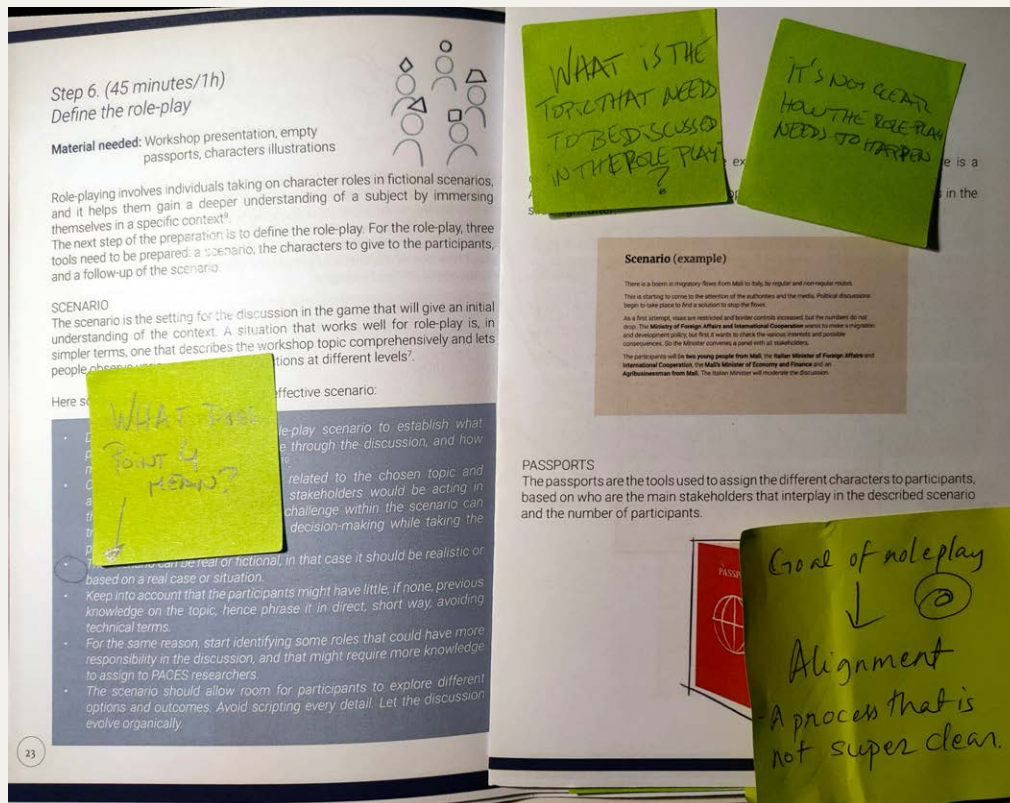 Step 6. (45 minutes/1h)
Define the role-play
Material needed: Workshop presentation, empty
passports, characters illustrations
Role-playing involves individuals taking on character roles in fictional scenarios,
and it helps them gain a deeper understanding of a subject by immersing
themselves in a specific context⁹.
The next step of the preparation is to define the role-play. For the role-play, three
tools need to be prepared: a scenario, the characters to give to the participants,
and a follow-up of the scenario.
SCENARIO
The scenario is the setting for the discussion in the game that will give an initial
understanding of the context. A situation that works well for role-play is, in
simpler terms, one that describes the workshop topic comprehensively and lets
people observe tions at different levels⁷.
Here effective scenario:
WHAT DOES
POINT 4
MEAN?
le-play scenario to establish what
through the discussion, and how
related to the chosen topic and
stakeholders would be acting in
challenge within the scenario can
decision-making while taking the
can be real or fictional, in that case it should be realistic or
based on a real case or situation.
• Keep into account that the participants might have little, if none, previous
knowledge on the topic, hence phrase it in direct, short way, avoiding
technical terms.
• For the same reason, start identifying some roles that could have more
responsibility in the discussion, and that might require more knowledge
to assign to PACES researchers.
• The scenario should allow room for participants to explore different
options and outcomes. Avoid scripting every detail. Let the discussion
evolve organically.
23
WHAT IS THE
TOPIC THAT NEED
TO BE DISCUSSED
IN THE ROLE PLAY
?
IT'S NOT CLEAR
HOW THE ROLE PLAY
NEEDS TO HAPPEN
is a
in the
Scenario (example)
There is a boom in migratory flows from Mali to Italy, by regular and non-regular routes.
This is starting to come to the attention of the authorities and the media. Political discussions
begin to take place to find a solution to stop the flows.
As a first attempt, visas are restricted and border controls increased, but the numbers do not
drop. The Ministry of Foreign Affairs and International Cooperation wants to make a migration
and development policy, but first it wants to check the various interests and possible
consequences. So the Minister convenes a panel with all stakeholders.
The participants will be two young people from Mali, the Italian Minister of Foreign Affairs and
International Cooperation, the Mali's Minister of Economy and Finance and an
Agribusinessman from Mali. The Italian Minister will moderate the discussion.
PASSPORTS
The passports are the tools used to assign the different characters to participants,
based on who are the main stakeholders that interplay in the described scenario
and the number of participants.
PASSP
Goal of roleplay
Alignment
- A process that is
not super clear.